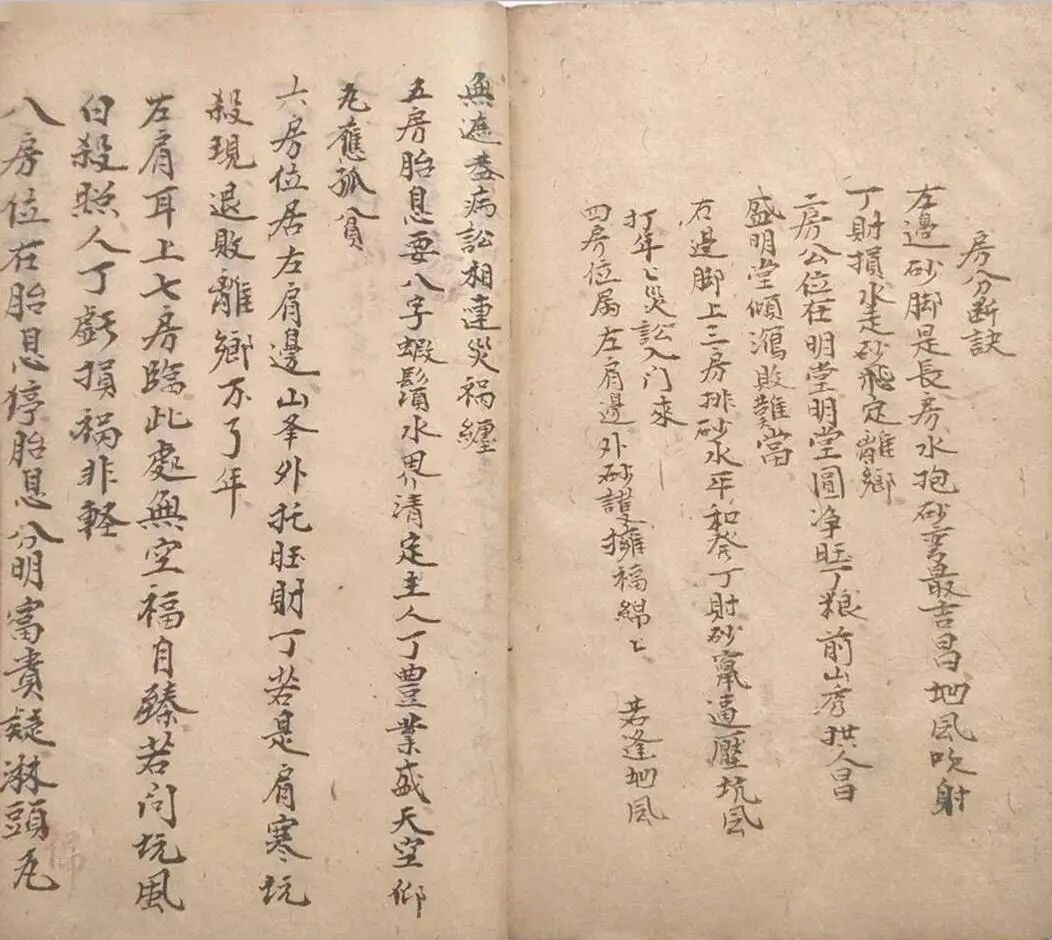 房分断訣
左邊砂脚是長房水抱砂弯最吉昌地风吹射
丁財損水走砂飛定離鄉
二房公位在明堂明堂圓净旺丁粮前山秀拱人昌
盛明堂傾瀉敗難當
右邊脚上三房排砂水平和發丁財砂竄逼壓坑风
打年〻災訟入门來
四房位居左肩邊外砂擁福綿〻 若逢地风
無遮疾病訟相連災祸纏
五房胎息要八字蝦鬚水界清定主人丁豐業盛天空仰
瓦應孤貧
六房位居左肩邊山峯外托旺財丁若是肩寒坑
殺現退敗離鄉不了年
左肩耳上七房臨此處無空福自臻若问坑風
白殺照人丁虧損祸非輕
八房位右胎息停胎息分明富貴疑淋頭瓦